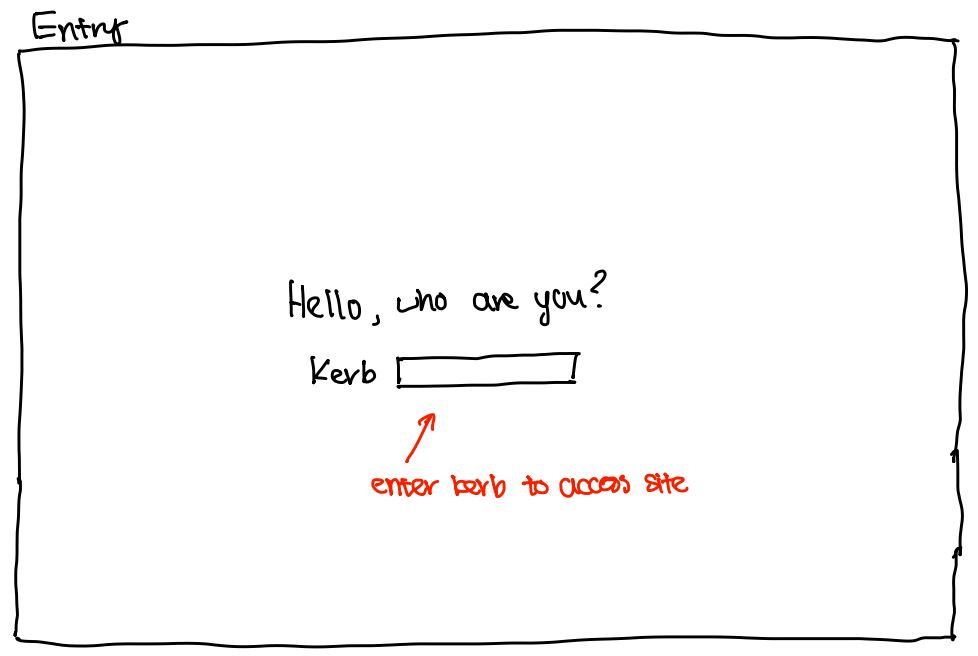 Entry
Hello, who are you?
Kerb
enter kerb to access site